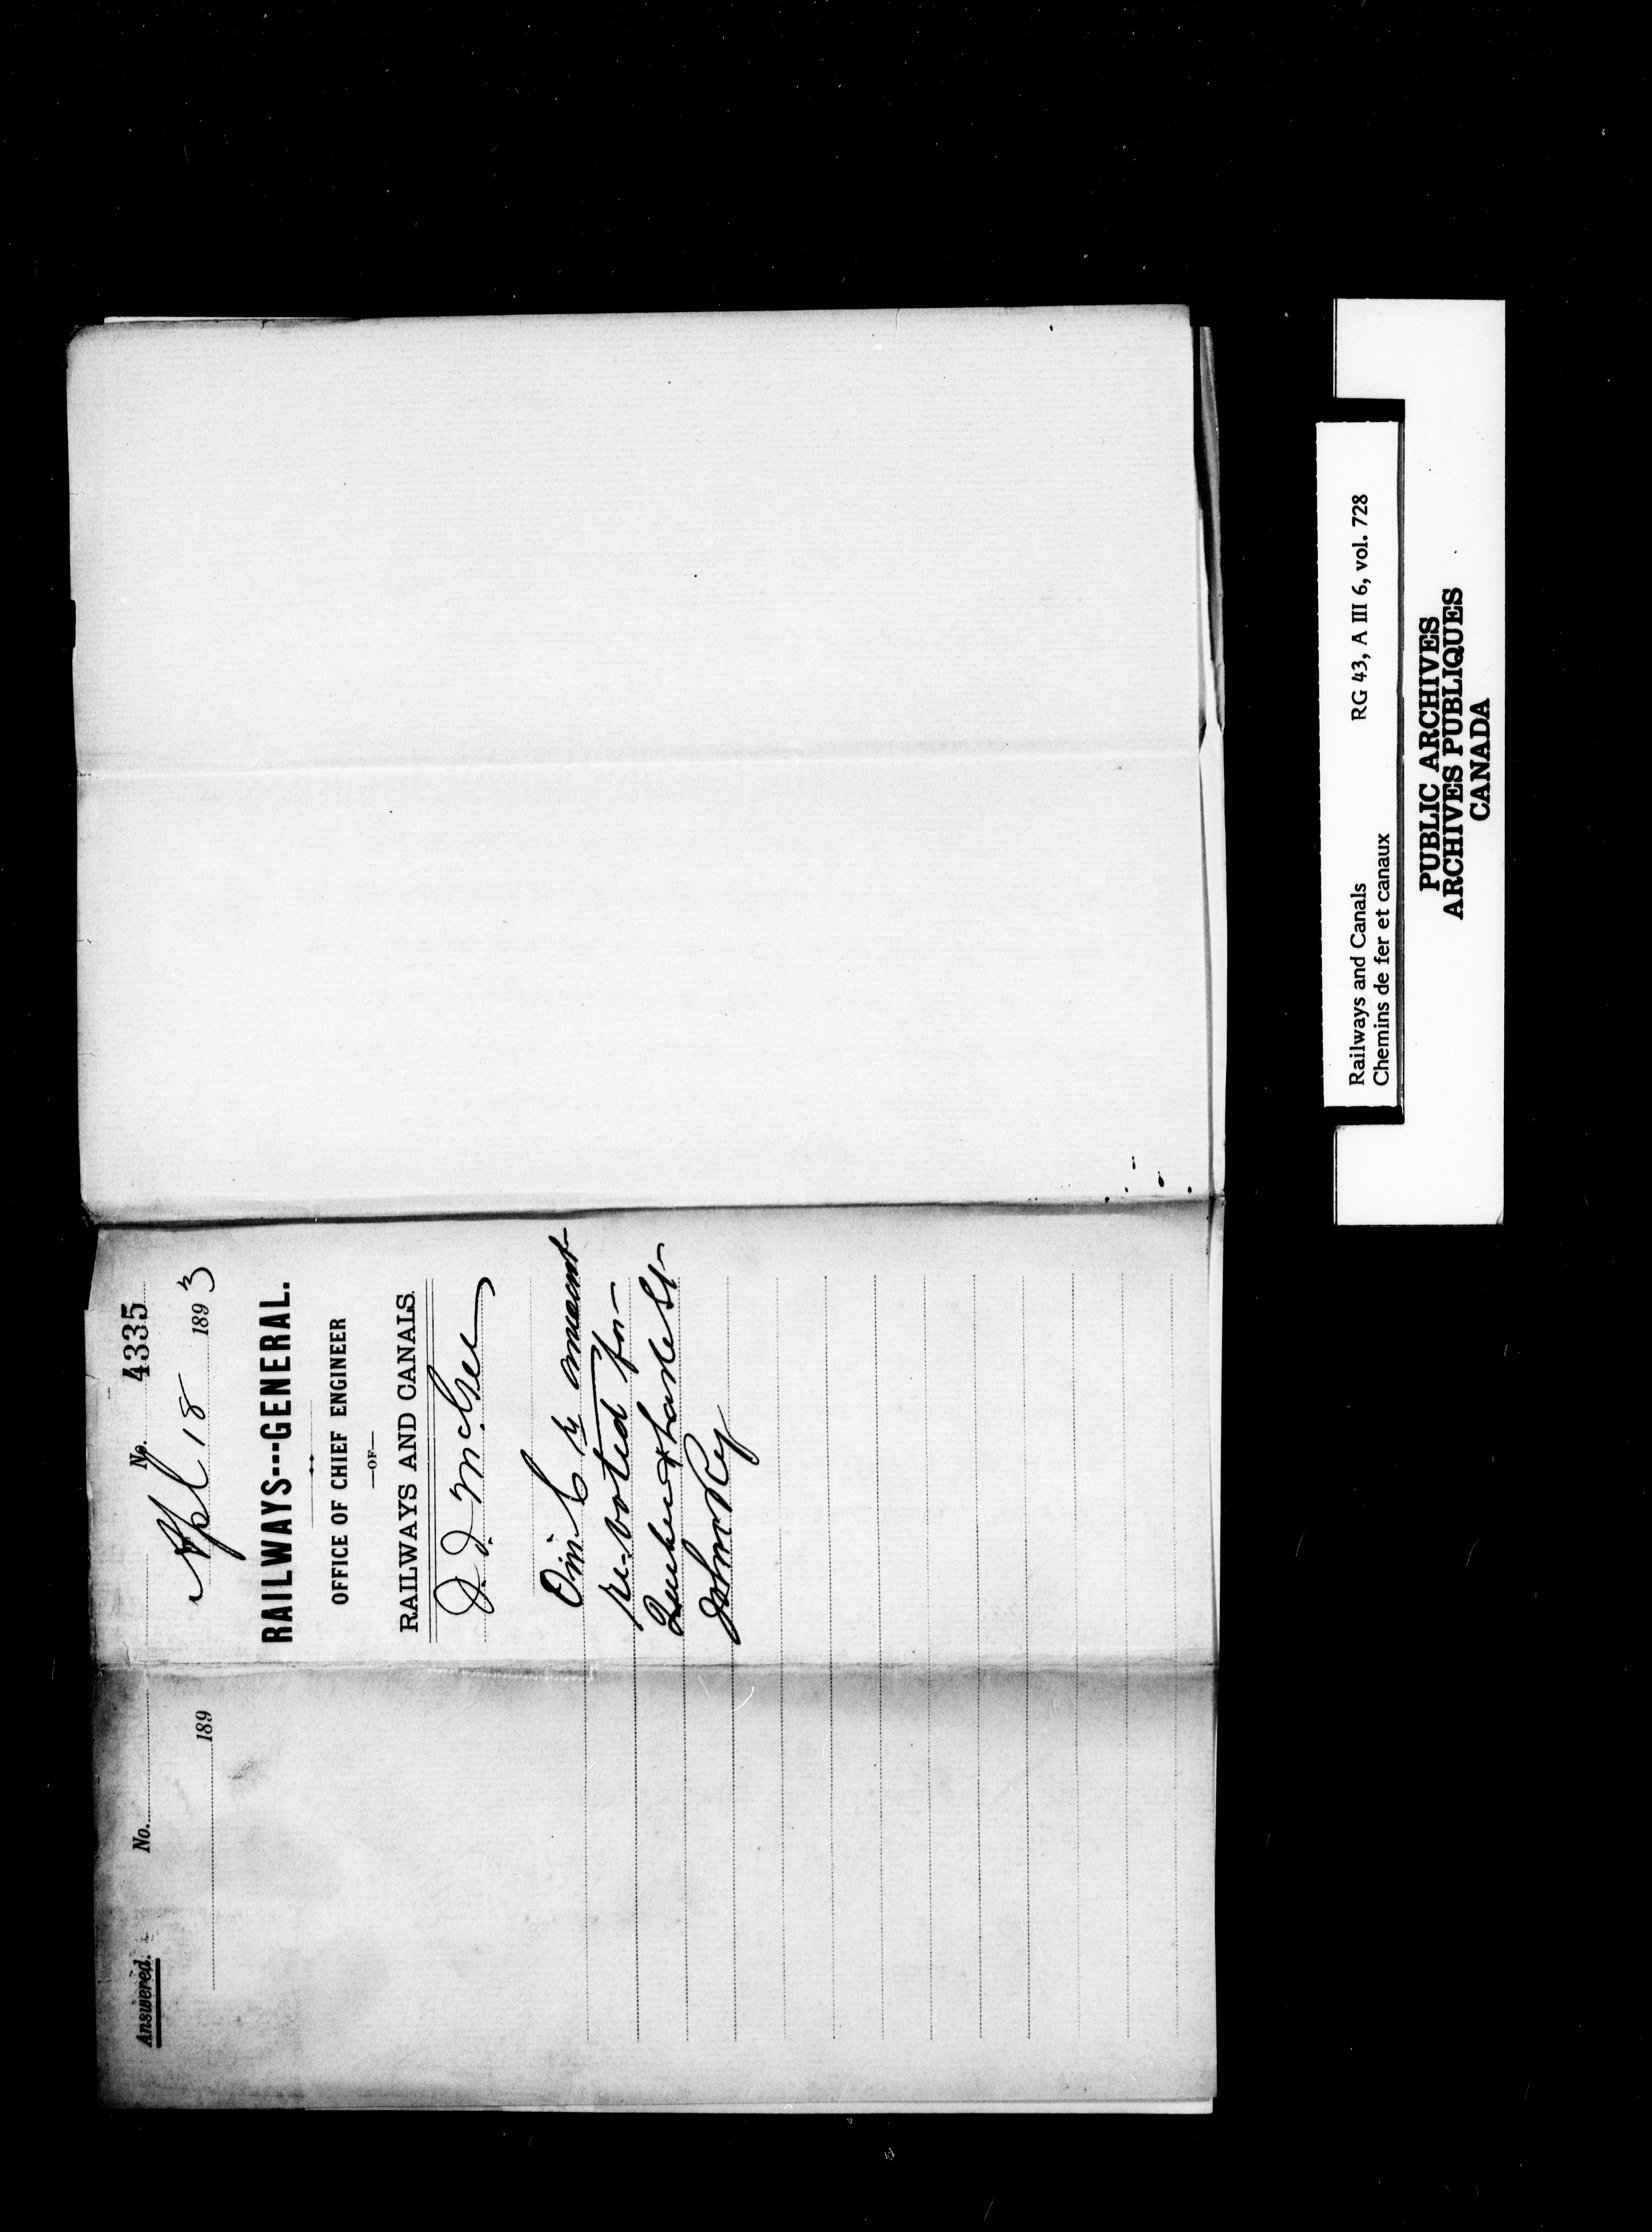 Answered.
No.
189
No. 4335
Apl 18 1893
RAILWAYS---GENERAL.
OFFICE OF CHIEF ENGINEER
—OF—
RAILWAYS AND CANALS.
J. J. McGee
O in C re amount
re-voted for
Quebec & Lake St
John Ry
Railways and Canals RG 43, A III 6, vol. 728
Chemins de fer et canaux
PUBLIC ARCHIVES
ARCHIVES PUBLIQUES
CANADA